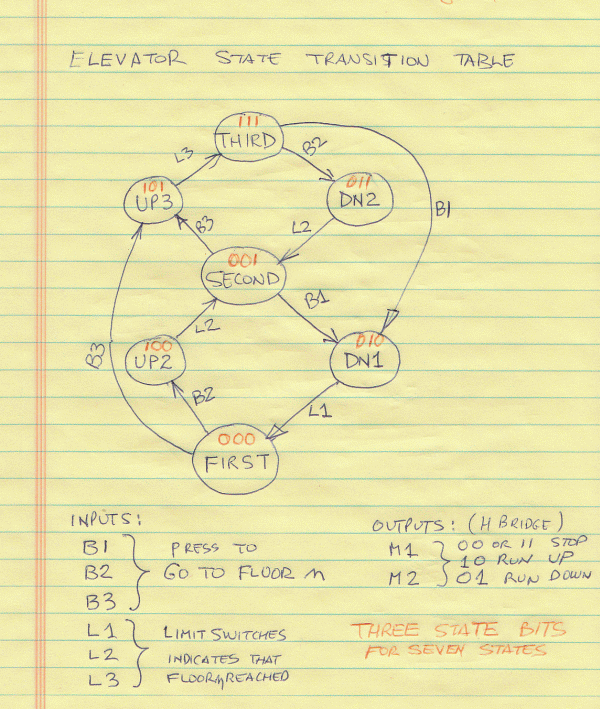 ELEVATOR STATE TRANSITION TABLE
111
THIRD
L3
B2
101
UP3
011
DN2
B1
B3
L2
001
SECOND
L2
B1
100
UP2
010
DN1
B3
B2
L1
000
FIRST
INPUTS:
B1
B2
B3
PRESS TO
GO TO FLOOR n
L1
L2
L3
LIMIT SWITCHES
INDICATES THAT
FLOOR n REACHED
OUTPUTS: (H BRIDGE)
M1
M2
00 OR 11 STOP
10 RUN UP
01 RUN DOWN
THREE STATE BITS
FOR SEVEN STATES